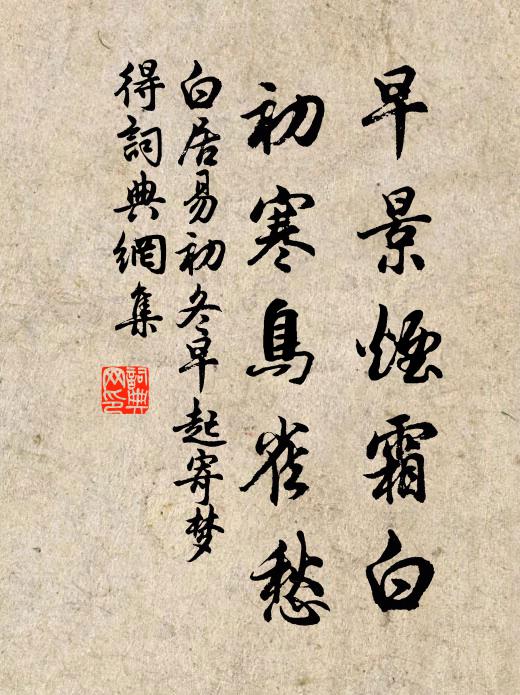 早景煙霜白
初寒鳥雀愁
白居易初冬早起寄梦
得詞典網集
詞典
网印